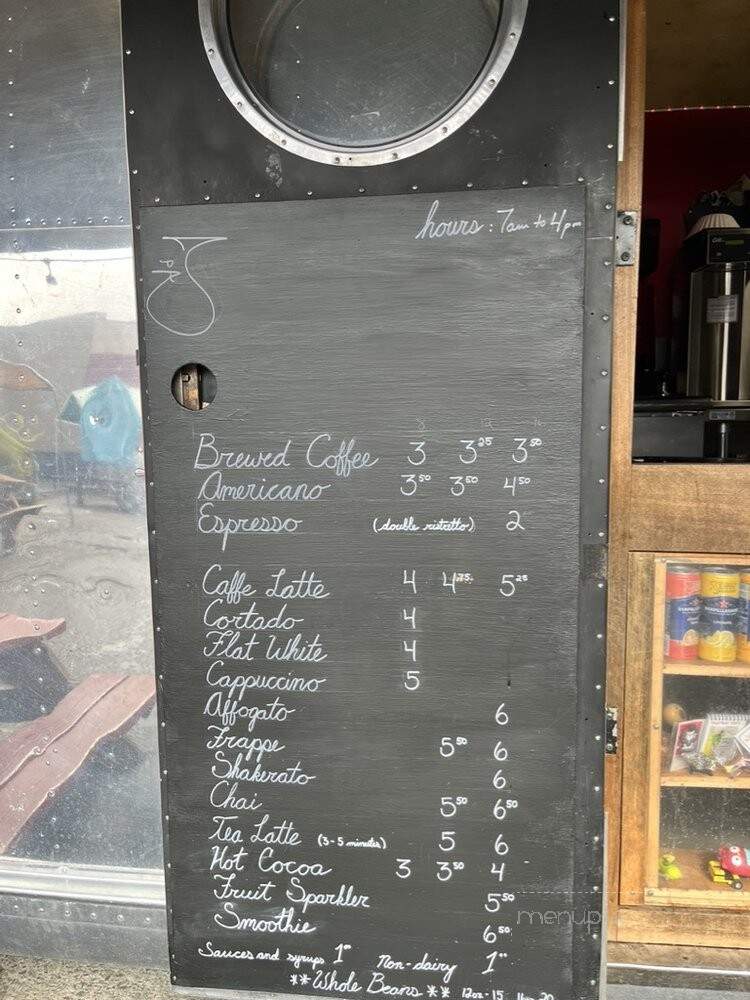 hours: 7am to 4pm
PR
8 12 16
Brewed Coffee 3 3²⁵ 3⁵⁰
Americano 3⁵⁰ 3⁵⁰ 4⁵⁰
Espresso (double ristretto) 2
Caffe Latte 4 4⁷⁵ 5²⁵
Cortado 4
Flat White 4
Cappuccino 5
Affogato 6
Frappe 5⁵⁰ 6
Shakerato 6
Chai 5⁵⁰ 6⁵⁰
Tea Latte (3-5 minutes) 5 6
Hot Cocoa 3 3⁵⁰ 4
Fruit Sparkler 5⁵⁰
Smoothie 6⁵⁰
Sauces and syrups 1⁰⁰ Non-dairy 1⁰⁰
**Whole Beans** 12oz-15
menup